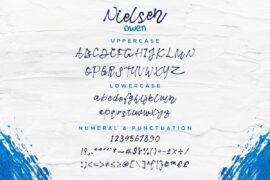 Nielsen
owen
UPPERCASE
ABCDEFGHIJKLMN
OPQRSTUVWXYZ
LOWERCASE
abcdefghijklm
nopqrstuvwxyz
NUMERAL & PUNCTUATION
1234567890